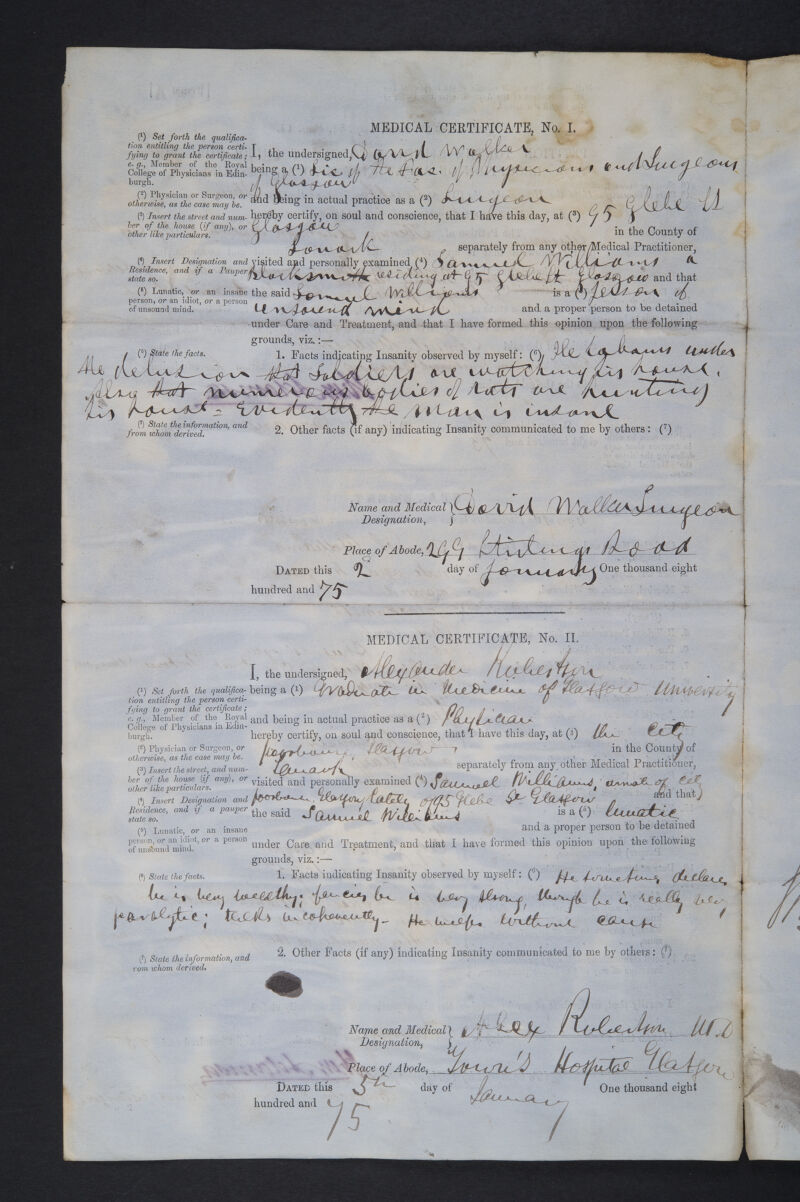 MEDICAL CERTIFICATE, No. I.
(1) Set forth the qualifica-
tion entitling the person certi-
fying to grant the certificate;
e.g., Member of the Royal
College of Physicians in Edin-
burgh.
I, the undersigned, David Walker
being a (1) Lic of the Fac. of Physicians and Surgeons
of Glasgow
(2) Physician or Surgeon, or
otherwise, as the case may be.
and being in actual practice as a (2) Surgeon
(3) Insert the street and num-
ber of the house (if any), or
other like particulars.
hereby certify, on soul and conscience, that I have this day, at (3) 95 Glebe St
Glasgow in the County of
Lanark separately from any other Medical Practitioner,
(4) Insert Designation and
Residence, and if a Pauper
state so.
visited and personally examined (4) Samuel Williams a
Blacksmith residing at 95 Glebe St Glasgow and that
(5) Lunatic, or an insane
person, or an idiot, or a person
of unsound mind.
the said Samuel Williams is a (5) person of
unsound mind and a proper person to be detained
under Care and Treatment, and that I have formed this opinion upon the following
grounds, viz.:—
(6) State the facts.
1. Facts indicating Insanity observed by myself: (6) He labours under
the delusion that soldiers are watching his house.
Also that numerous bodies of rats are hunting
his house - Evidently the man is insane
(7) State the information, and
from whom derived.
2. Other facts (if any) indicating Insanity communicated to me by others: (7)
Name and Medical Designation, David Walker Surgeon
Place of Abode, 299 Stirlings Road
DATED this 2 day of January One thousand eight
hundred and 75
MEDICAL CERTIFICATE, No. II.
I, the undersigned, Alexander Robertson
(1) Set forth the qualifica-
tion entitling the person certi-
fying to grant the certificate;
e.g., Member of the Royal
College of Physicians in Edin-
burgh.
being a (1) Graduate in Medicine of Glasgow University
and being in actual practice as a (2) Physician
(2) Physician or Surgeon, or
otherwise, as the case may be.
hereby certify, on soul and conscience, that I have this day, at (3) the City
poorhouse, Glasgow in the County of
(3) Insert the street, and num-
ber of the house (if any), or
other like particulars.
Lanark separately from any other Medical Practitioner,
visited and personally examined (4) Samuel Williams, inmate of City
(4) Insert Designation and
Residence, and if a pauper
state so.
poorhouse Glasgow, lately of 95 Glebe St Glasgow and that
the said Samuel Williams is a (5) lunatic
(5) Lunatic, or an insane
person, or an idiot, or a person
of unsound mind.
and a proper person to be detained
under Care and Treatment, and that I have formed this opinion upon the following
grounds, viz.:—
(6) State the facts.
1. Facts indicating Insanity observed by myself: (6) He sometimes declares
he is very wealthy; fancies he is very strong, though he is really very
paralytic; talks incoherently - He weeps without cause
(7) State the information, and
rom whom derived.
2. Other Facts (if any) indicating Insanity communicated to me by others: (7)
Name and Medical Designation, Alex Robertson M.D
Place of Abode, Town's Hospital Glasgow
DATED this 5th day of January One thousand eight
hundred and 75